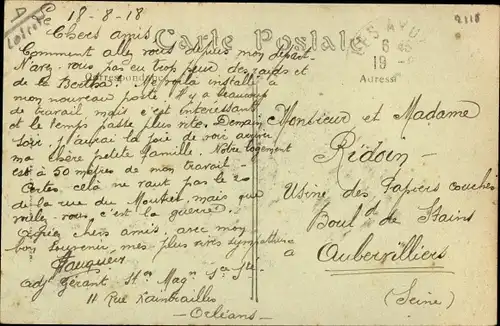 Le 18-8-18
Chers amis
Carte Postale
Correspondance
Adresse
2118
Comment allez vous depuis mon départ
N'avez vous pas eu trop peur des raids et
de la Bertha. Me voilà installé à
mon nouveau poste. Il y a beaucoup
de travail mais c'est intéressant
et le temps passe plus vite. Demain
soir j'aurai la joie de voir arriver
ma chère petite famille. Notre logement
est à 50 mètres de mon travail -
Certes cela ne vaut pas le
de la rue du Moutier, mais que
voulez-vous, c'est la guerre.
chers amis, avec mon
bon souvenir, mes plus vives sympathies
Fauqueur
adjt gérant Son Magn Sce Sté
11 Rue Xaintrailles
- Orléans -
Monsieur et Madame
Ridoin -
Usine des Papiers couchés
Boul. d de Stains
à Aubervilliers
(Seine)